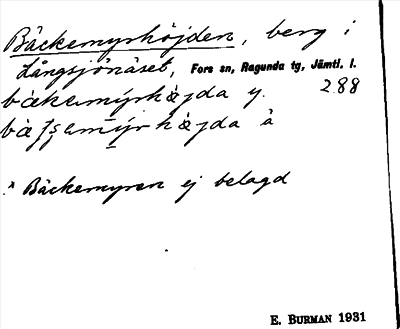 Bäckemyrhöjden, berg i
Långsjönäset, Fors sn, Ragunda tg, Jämtl. l.
288
y.
å
* Bäckemyren ej belagd
E. BURMAN 1931